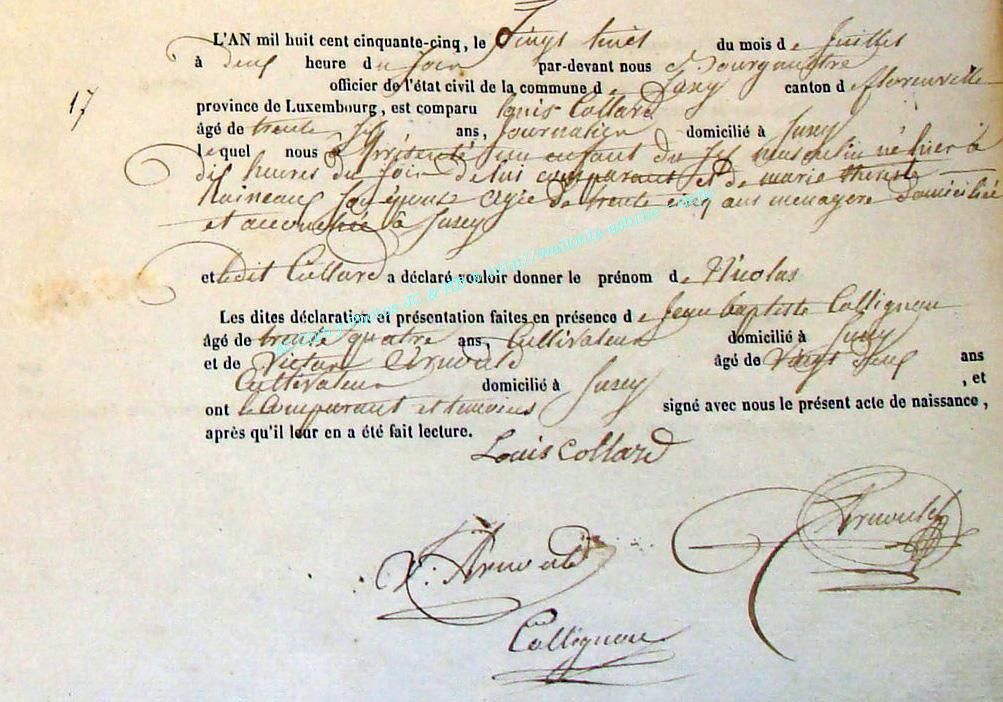 L'AN mil huit cent cinquante-cinq, le vingt huit du mois de Juillet
à deux heure du soir par-devant nous Bourgmestre
officier de l'état civil de la commune de Suxy canton de florenville
17
province de Luxembourg, est comparu Louis Collard
âgé de trente six ans, Journalier domicilié à Suxy
lequel nous a présenté un enfant du sexe masculin né hier à
dix heures du soir de lui comparant et de marie thérèse
son épouse agée de trente cinq ans menagere domiciliée
et accouchée à Suxy
et ledit Collard a déclaré vouloir donner le prénom de Nicolas
Les dites déclaration et présentation faites en présence de Jean baptiste Collignon
âgé de trente quatre ans, Cultivateur domicilié à Suxy
et de Victor Arnould âgé de vingt deux ans
Cultivateur domicilié à Suxy , et
ont le comparant et temoins signé avec nous le présent acte de naissance,
après qu'il leur en a été fait lecture.
Louis Collard
Arnould
V. Arnould
Collignon